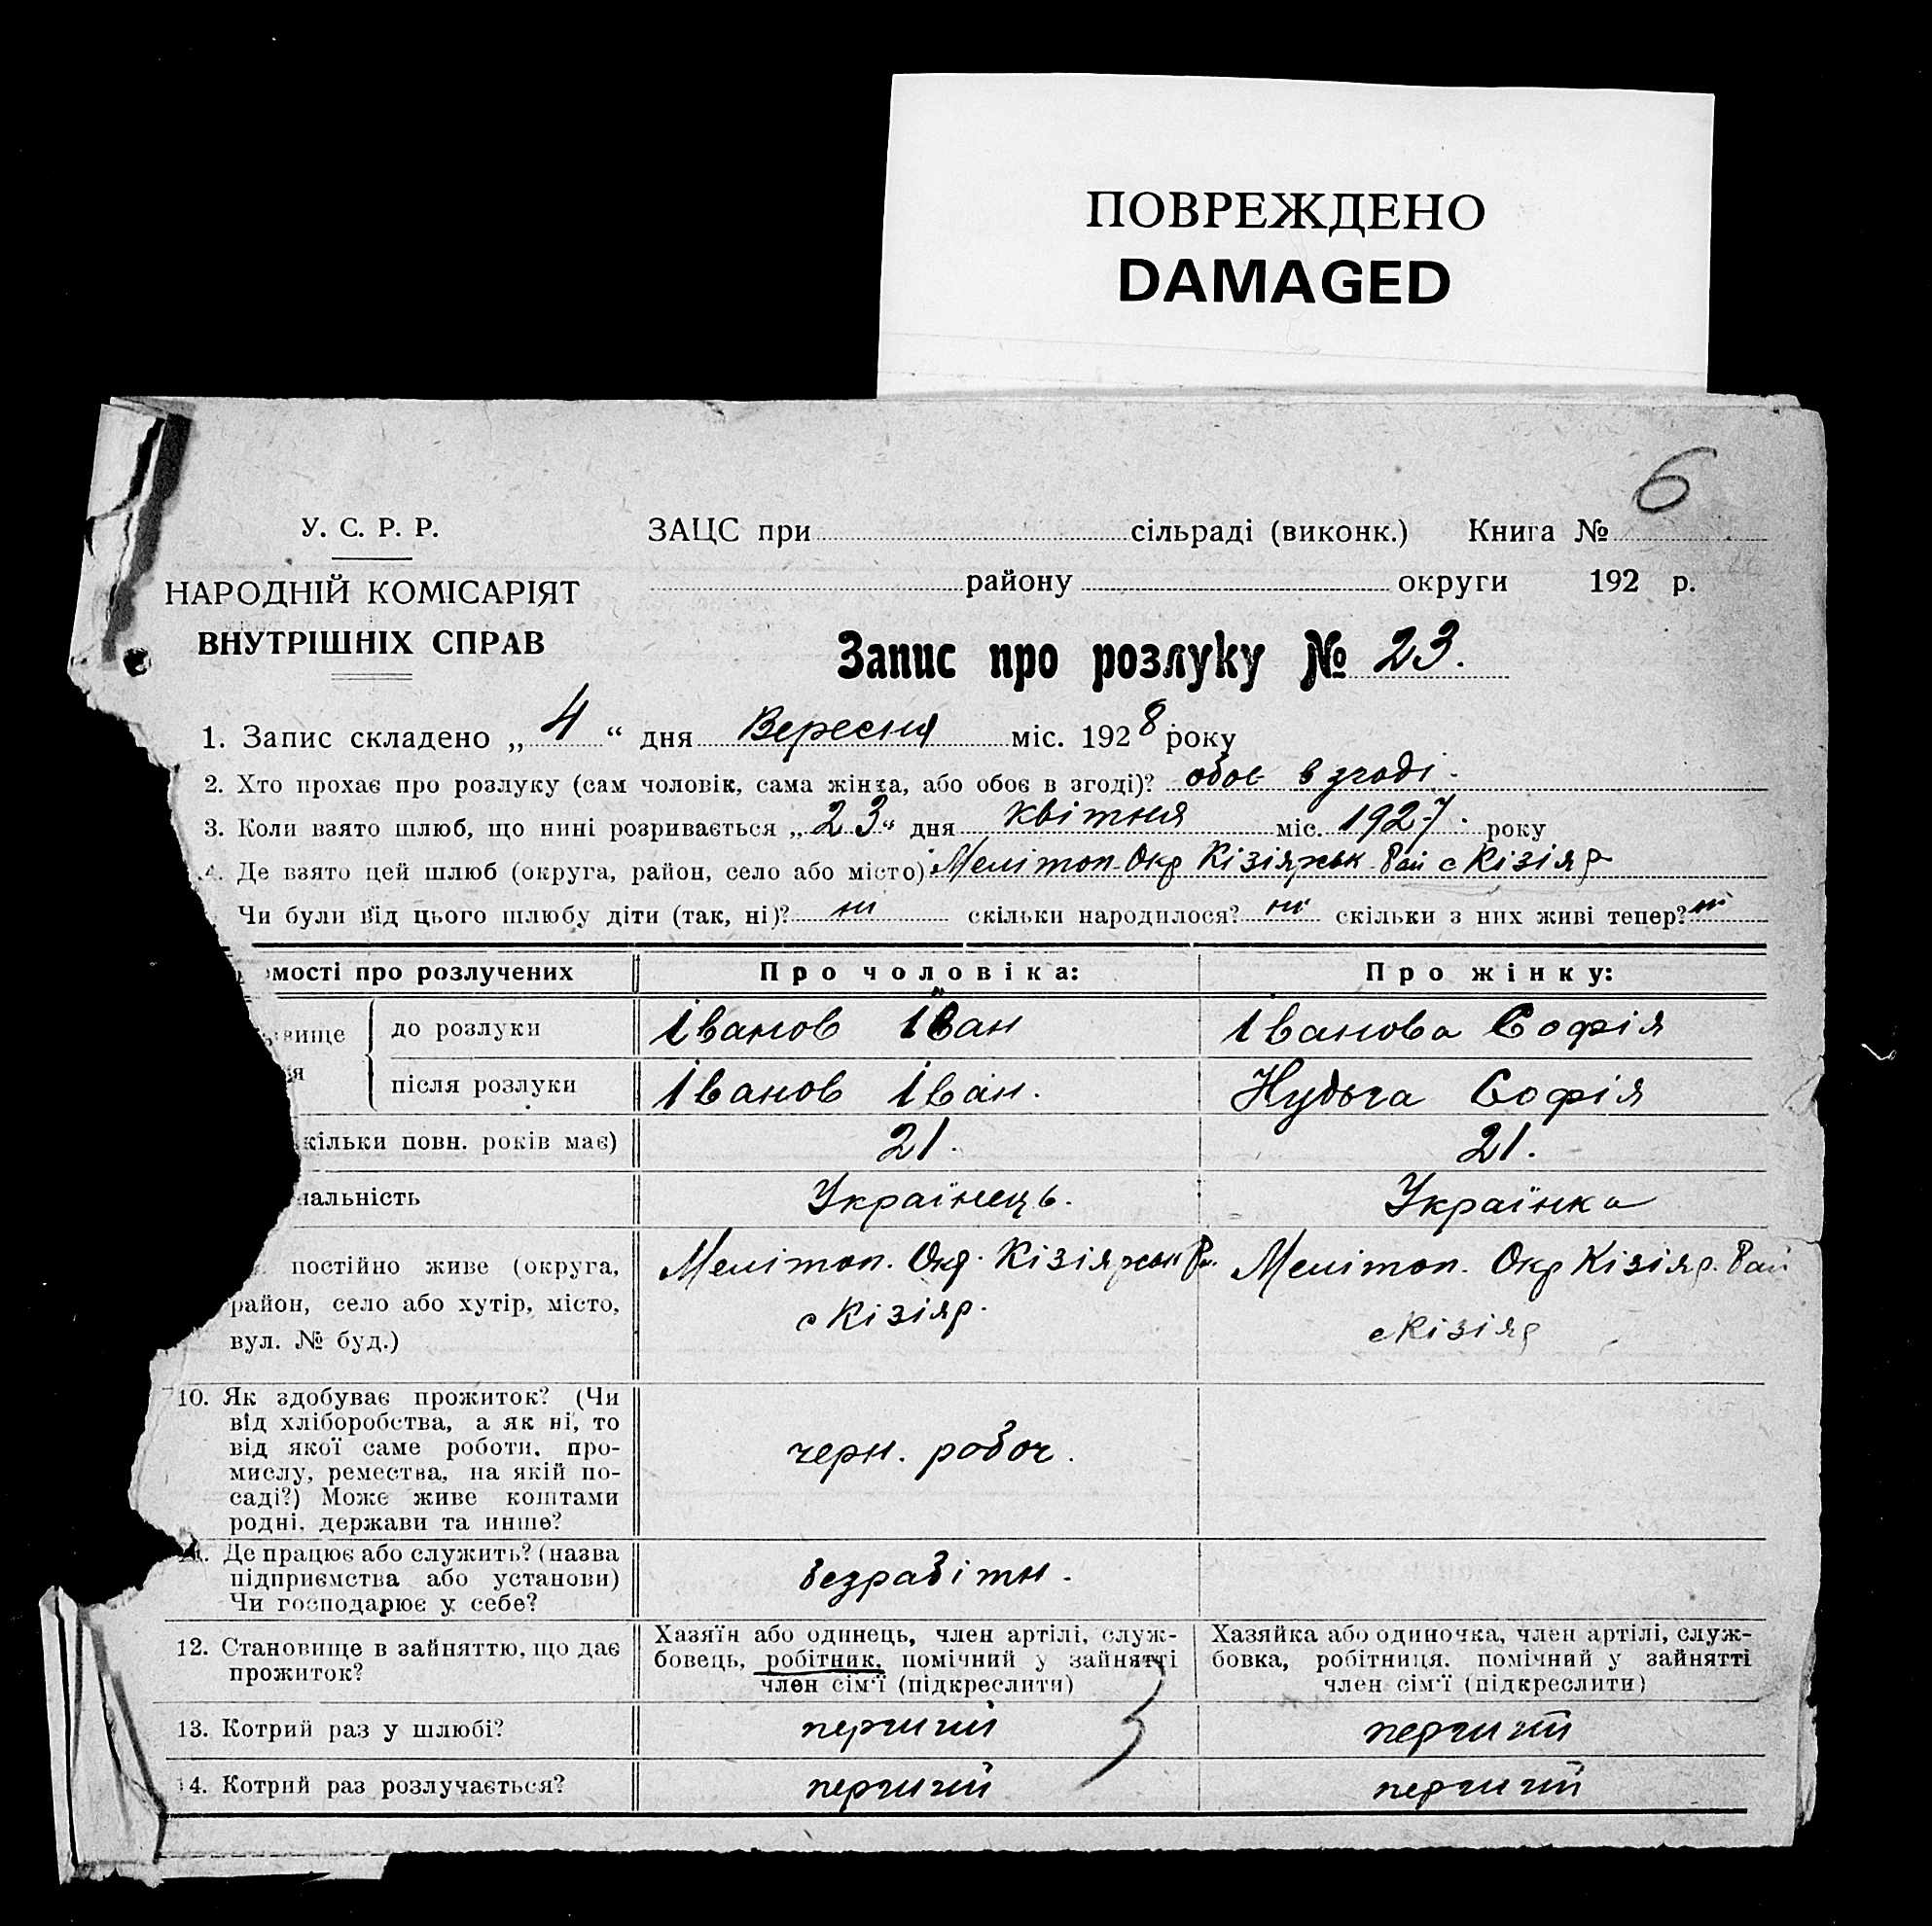 ПОВРЕЖДЕНО
DAMAGED
6
У. С. Р. Р.
НАРОДНІЙ КОМІСАРІЯТ
ВНУТРІШНІХ СПРАВ
ЗАЦС при сільраді (виконк.) Книга №
району округи 192 р.
Запис про розлуку № 23.
1. Запис складено „ 4 “ дня Вересня міс. 1928 року
2. Хто прохає про розлуку (сам чоловік, сама жінка, або обоє в згоді)? обоє в згоді.
3. Коли взято шлюб, що нині розривається „ 23 “ дня квітня міс. 1927. року
4. Де взято цей шлюб (округа, район, село або місто) Мелітоп. Окр Кізіярськ. Рай с Кізіяр
Чи були від цього шлюбу діти (так, ні)? ні скільки народилося? ні скільки з них живі тепер? ні
омості про розлучених Про чоловіка: Про жінку:
звище до розлуки Іванов Іван Іванова Софія
я після розлуки Іванов Іван. Нудьга Софія
кільки повн. років має) 21. 21.
нальність Українець. Українка
постійно живе (округа, район, село або хутір, місто, вул. № буд.)
Мелітоп. Окр. Кізіярськ Р.
с Кізіяр.
Мелітоп. Окр Кізіяр. Рай
с Кізіяр
10. Як здобуває прожиток? (Чи
від хліборобства, а як ні, то
від якої саме роботи, про-
мислу, ремества, на якій по-
саді?) Може живе коштами
родні, держави та инше?
черн. робоч.
11. Де працює або служить? (назва
підприємства або установи)
Чи господарює у себе?
безробітн.
12. Становище в зайняттю, що дає
прожиток?
Хазяїн або одинець, член артілі, служ-
бовець, робітник, помічний у зайнятті
член сім'ї (підкреслити)
Хазяйка або одиночка, член артілі, служ-
бовка, робітниця, помічний у зайнятті
член сім'ї (підкреслити)
13. Котрий раз у шлюбі? перший перший
14. Котрий раз розлучається? перший перший